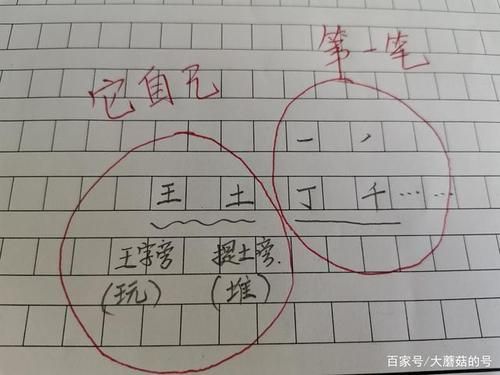 第一笔
它自己
一 丿
王 土 丁 千 ……
王字旁 提土旁.
(玩) (堆)
百家号/大蘑菇的号